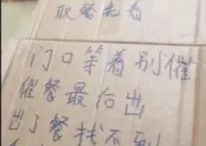 取餐先看
门口等着别催
催餐最后出
出了餐找不到